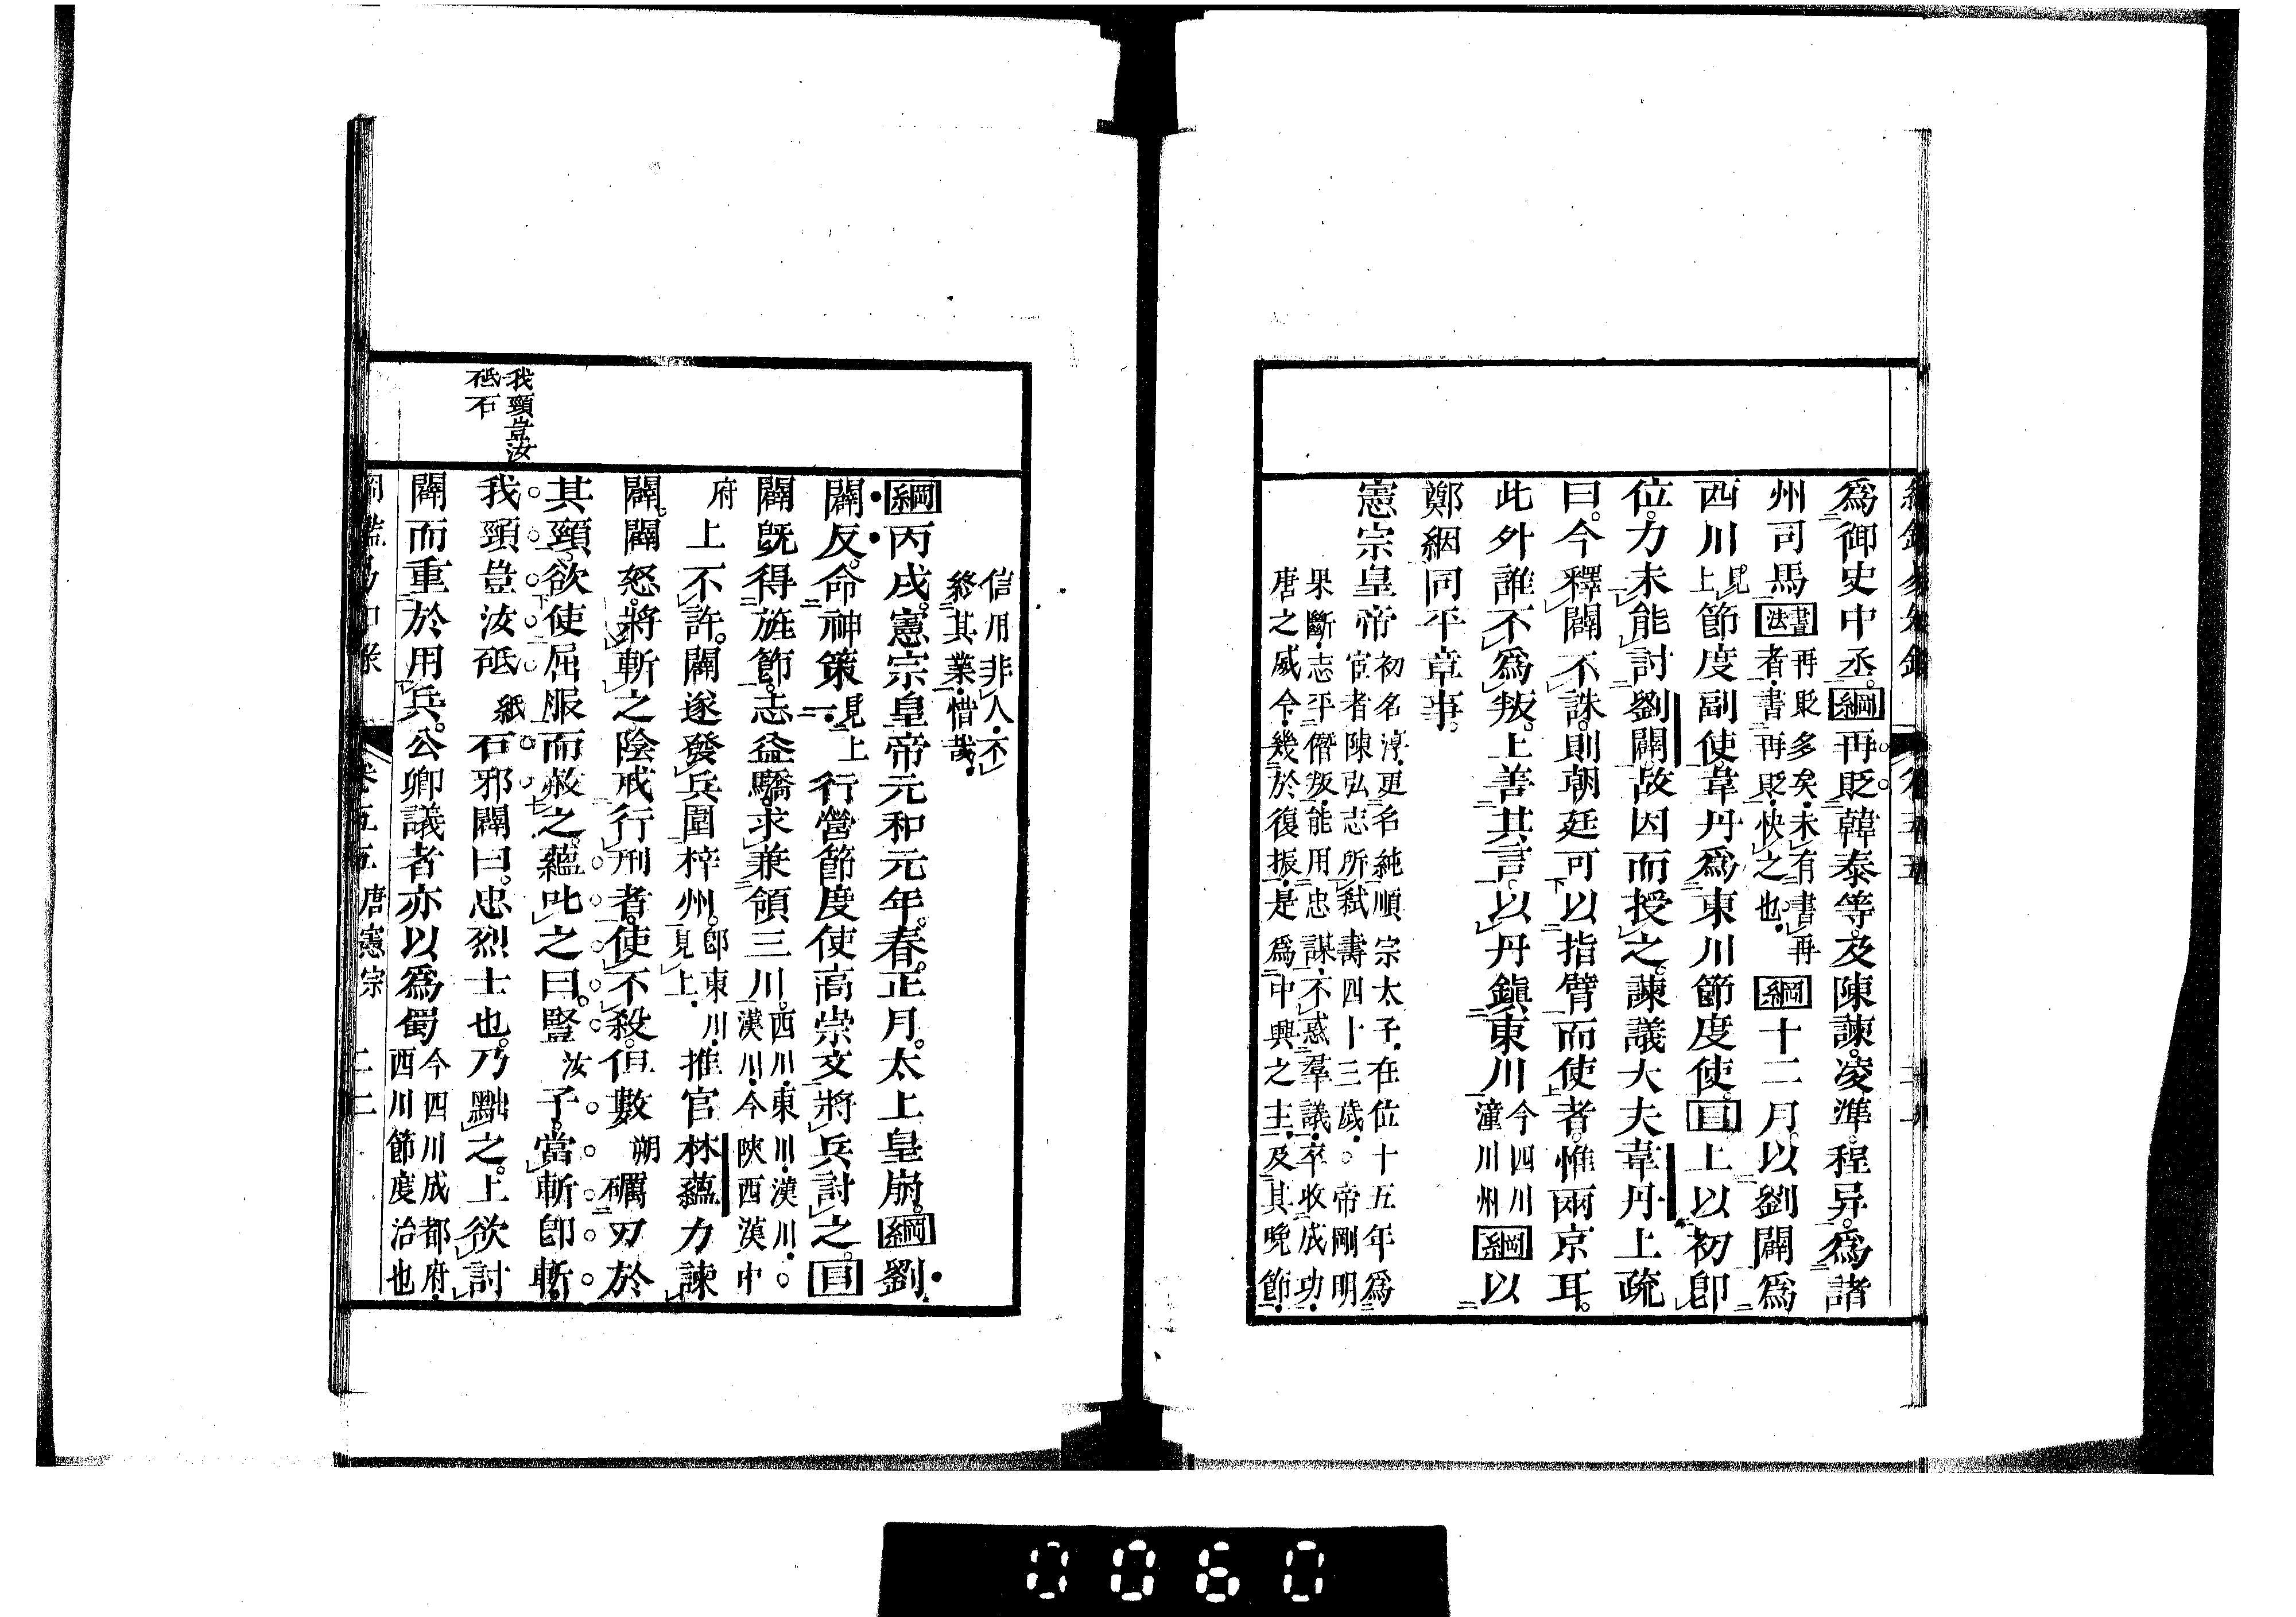 爲御史中丞。綱再貶韓泰等。及陳諫。凌準。程异。爲諸
州司馬書法再貶多矣。未有書再
者。書再貶。快之也。綱十二月。以劉闢爲
西川見上節度副使。韋丹爲東川節度使。目上以初卽
位。力未能討劉闢。故因而授之。諫議大夫韋丹上疏
曰。今釋闢不誅。則朝廷可以指臂而使者。惟兩京耳。
此外誰不爲叛。上善其言。以丹鎭東川今四川
潼川州綱以
鄭絪同平章事。
憲宗皇帝初名淳。更名純順宗太子。在位十五年爲
宦者陳弘志所弒壽四十三歲。○帝剛明
果斷。志平僭叛。能用忠謀。不惑羣議。卒收成功。
唐之威令。幾於復振。是爲中興之主。及其晚節。
信用非人。不
終其業。惜哉。
綱丙戌。憲宗皇帝元和元年。春。正月。太上皇崩。綱劉
闢反。命神策見上行營節度使高崇文將兵討之。目
闢旣得旌節。志益驕。求兼領三川。西川。東川。漢川。○
漢川。今陝西漢中
府上不許。闢遂發兵圍梓州。卽東川。
見上。推官林蘊力諫
闢。闢怒。將斬之。陰戒行刑者。使不殺。但數朔礪刃於
其頸。欲使屈服而赦之。蘊叱之曰。豎汝子。當斬卽斬。
我頸豈汝砥紙石邪。闢曰。忠烈士也。乃黜之。上欲討
闢而重於用兵。公卿議者亦以爲蜀今四川成都府。
西川節度治也
我頸豈汝
砥石
卷五五 唐憲宗 二二